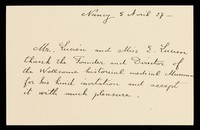 Nancy 5 April 27 —
Mr. Lucien and Miss E. Lucien
thank the Founder and Director of
the Wellcome historical medical Museum
for his kind invitation and accept
it with much pleasure.